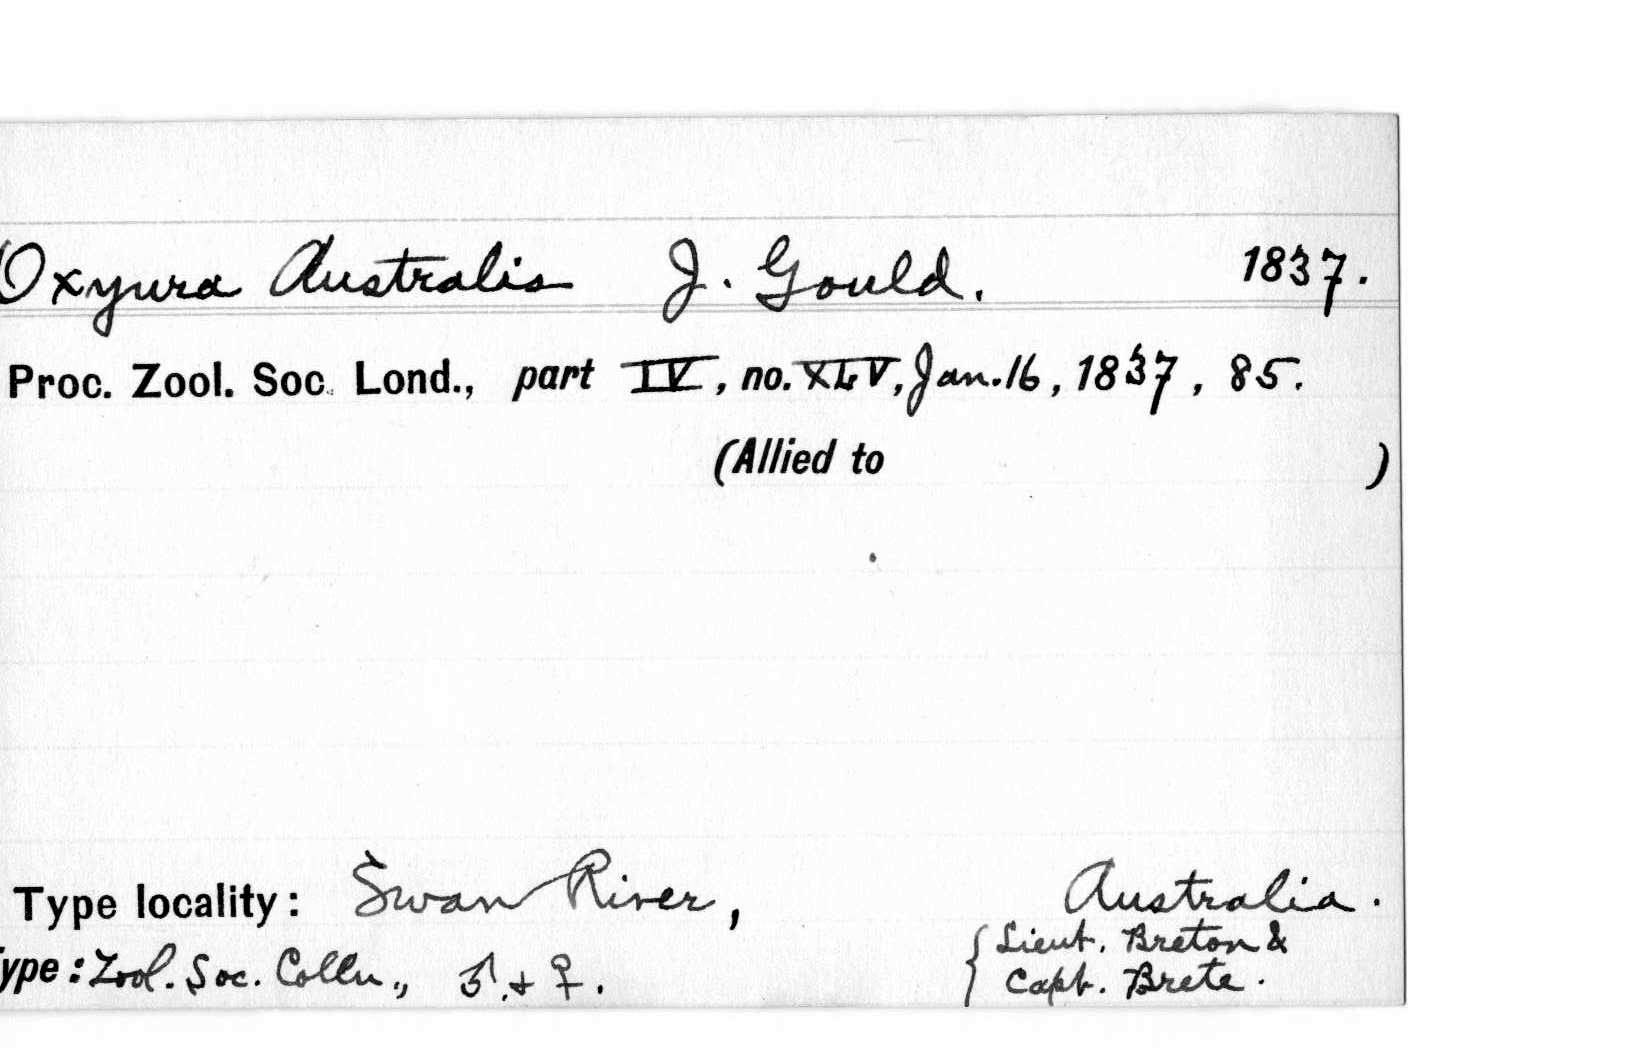 Oxyura Australis J. Gould. 1837.
Proc. Zool. Soc. Lond., part IV, no. XLV, Jan. 16, 1837, 85.
(Allied to )
Type locality: Swan River, Australia.
ype: Zool. Soc. Colln., ♂ + ♀. { Lieut. Breton &
Capt. Brete.